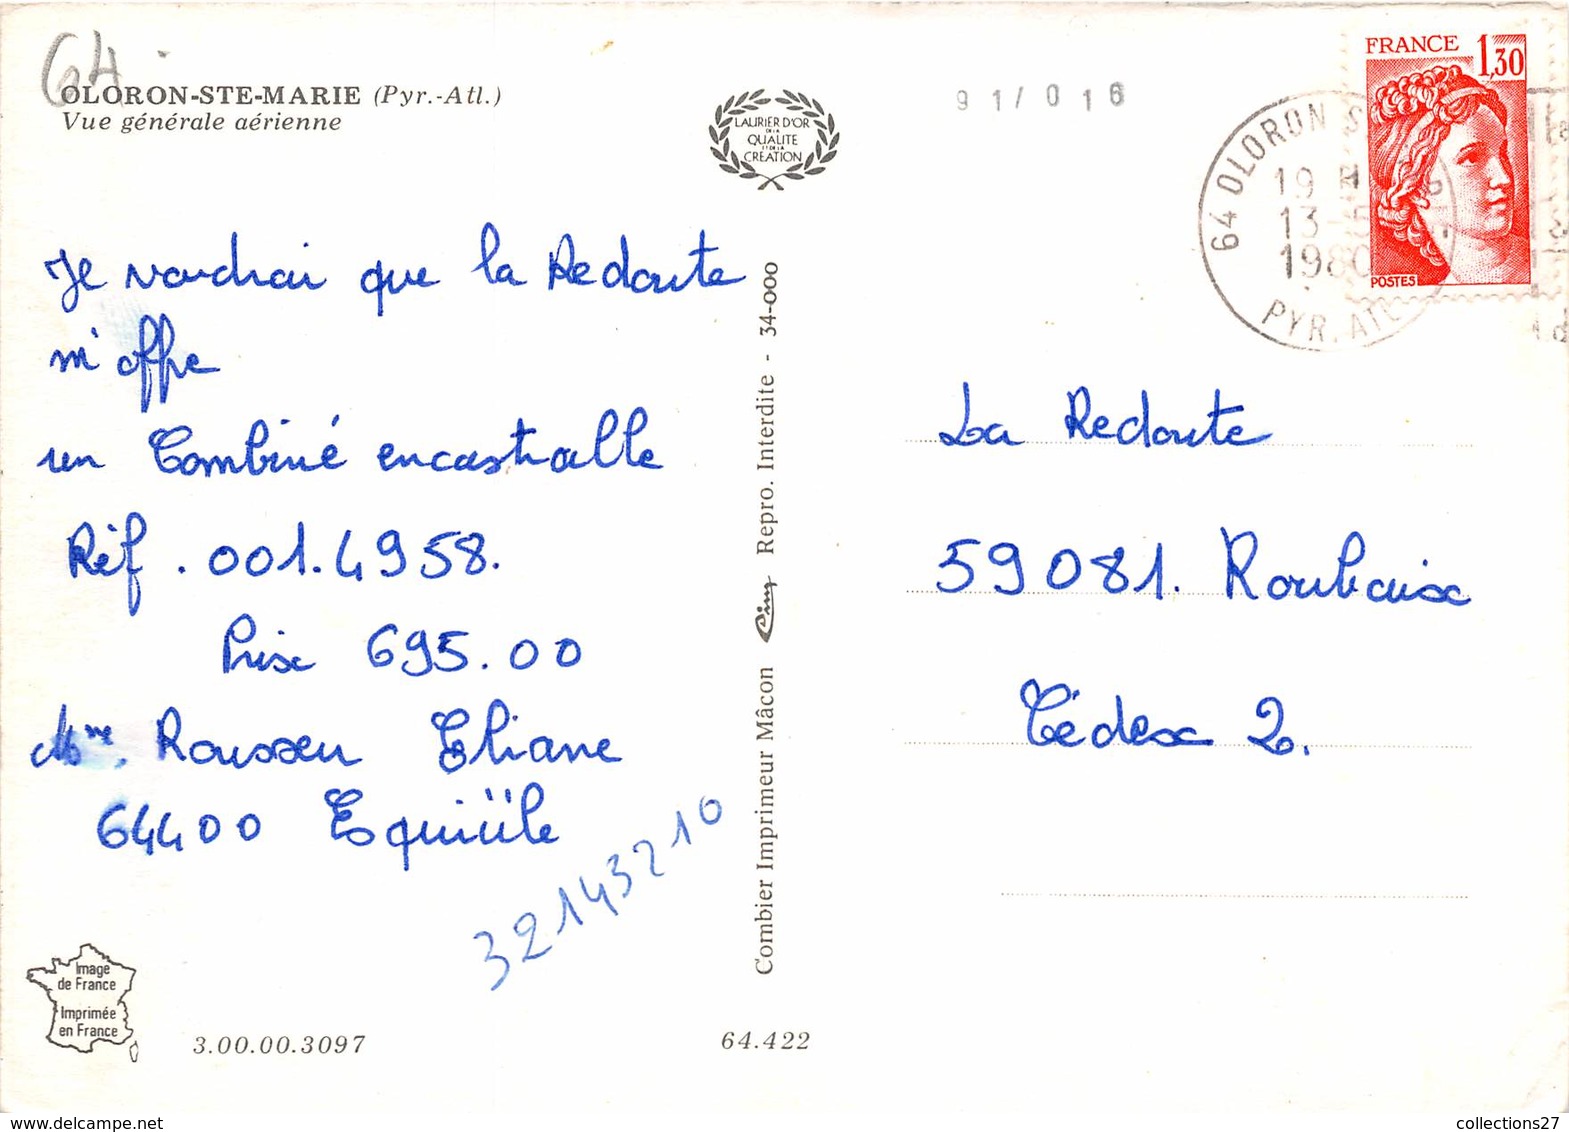 64
OLORON-STE-MARIE (Pyr.-Atl.)
Vue générale aérienne
LAURIER D'OR
DE LA
QUALITE
ET DE LA
CREATION
91/016
FRANCE 1,30
POSTES
64 OLORON S
19 H
13-5
1980
PYR. ATL
Je voudrai que la Redoute
m'offre
un Combiné encastrable
Réf. 001.4958.
Prix 695.00
Mme. Rousseu Eliane
64400 Esquiüle
32143210
La Redoute
59081. Roubaix
Cédex 2.
Combier Imprimeur Mâcon Cim Repro. Interdite - 34-000
Image
de France
Imprimée
en France
3.00.00.3097
64.422
collections27